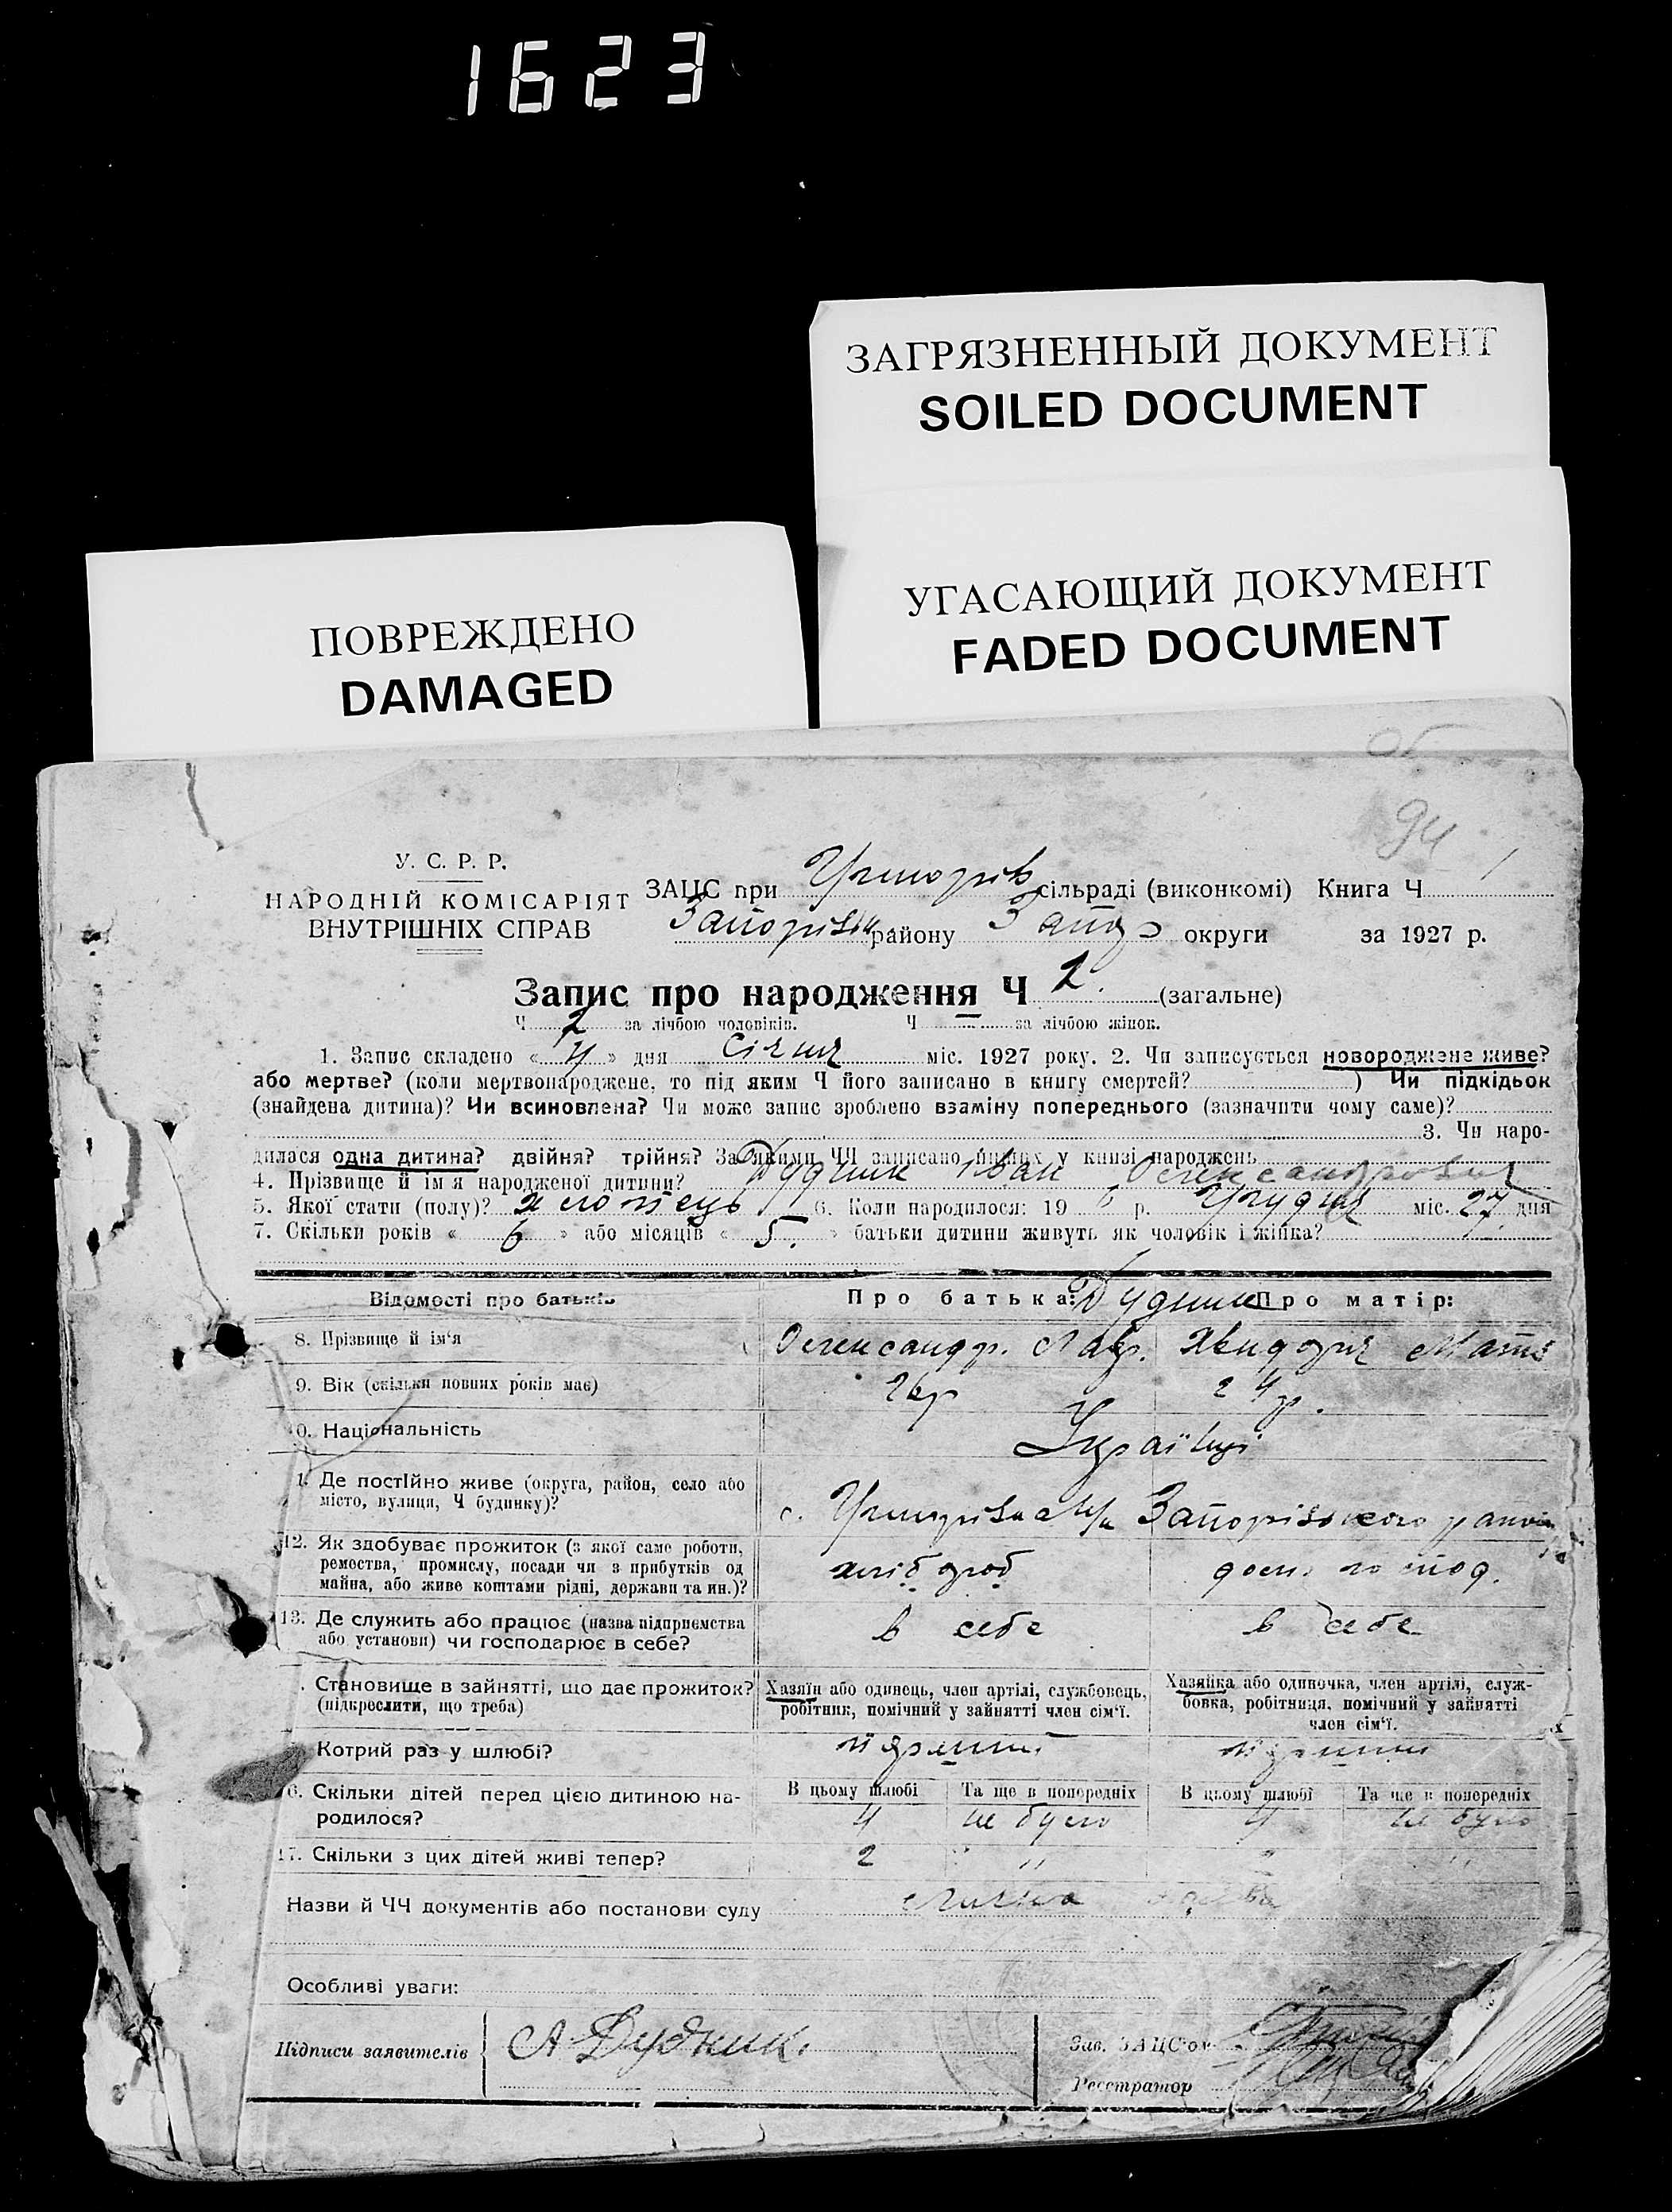 1623
ЗАГРЯЗНЕННЫЙ ДОКУМЕНТ
SOILED DOCUMENT
УГАСАЮЩИЙ ДОКУМЕНТ
FADED DOCUMENT
ПОВРЕЖДЕНО
DAMAGED
94
У. С. Р. Р.
НАРОДНІЙ КОМІСАРІЯТ
ВНУТРІШНІХ СПРАВ
ЗАЦС при сільраді (виконкомі) Книга Ч 1
району округи за 1927 р.
Запис про народження Ч 2. (загальне)
Ч 2 за лічбою чоловіків. Ч за лічбою жінок.
1. Запис складено « 4 » дня Січня міс. 1927 року. 2. Чи записується новороджене живе?
або мертве? (коли мертвонароджене, то під яким Ч його записано в книгу смертей? ) Чи підкідьок
(знайдена дитина)? Чи всиновлена? Чи може запис зроблено взаміну попереднього (зазначити чому саме)?
3. Чи наро-
дилася одна дитина? двійня? трійня? За якими ЧЧ записано инших у книзі народжень
4. Прізвище й ім'я народженої дитини? Дудник Іван Олександрович
5. Якої стати (полу)? хлопець 6. Коли народилося: 19 6 р. Грудня міс. 27 дня
7. Скільки років « 6 » або місяців « 5. » батьки дитини живуть як чоловік і жінка?
Відомості про батьків
Про батька: Дудник Про матір:
8. Прізвище й ім'я Олександр. Лавр.
9. Вік (скільки повних років має) 26р 24р.
10. Національність Українці
11. Де постійно живе (округа, район, село або
місто, вулиця, Ч будинку)?
с. Запорізького району
12. Як здобуває прожиток (з якої саме роботи,
ремества, промислу, посади чи з прибутків од
майна, або живе коштами рідні, держави та ин.)?
хліб роб дом. господ.
13. Де служить або працює (назва підприємства
або установи) чи господарює в себе?
в себе в себе
. Становище в зайнятті, що дає прожиток?
(підкреслити, що треба)
Хазяїн або одинець, член артілі, службовець,
робітник, помічний у зайнятті член сім'ї.
Хазяйка або одиночка, член артілі, служ-
бовка, робітниця, помічний у зайнятті
член сім'ї.
Котрий раз у шлюбі? перший перший
16. Скільки дітей перед цією дитиною на-
родилося?
В цьому шлюбі Та ще в попередніх В цьому шлюбі Та ще в попередніх
4 не було 4 не було
17. Скільки з цих дітей живі тепер? 2 " 2 "
Назви й ЧЧ документів або постанови суду
Особливі уваги:
Підписи заявителів А Дудник.
Зав. ЗАЦС'ом
Реєстратор